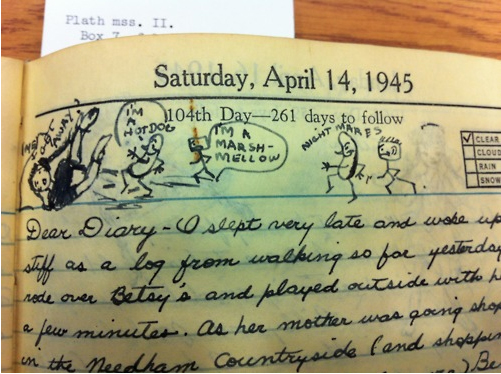 Plath mss. II.
Box 7
Saturday, April 14, 1945
104th Day—261 days to follow
I'M
A
HOTDOG
I'M A
MARSH-
MELLOW
NIGHTMARES
CLEAR
CLOUD
RAIN
SNOW
Dear Diary - I slept very late and woke up
stiff as a log from walking so far yesterday
rode over Betsy's and played outside with h
a few minutes. As her mother was going shop
in the Needham Countryside (and shoppin
Be